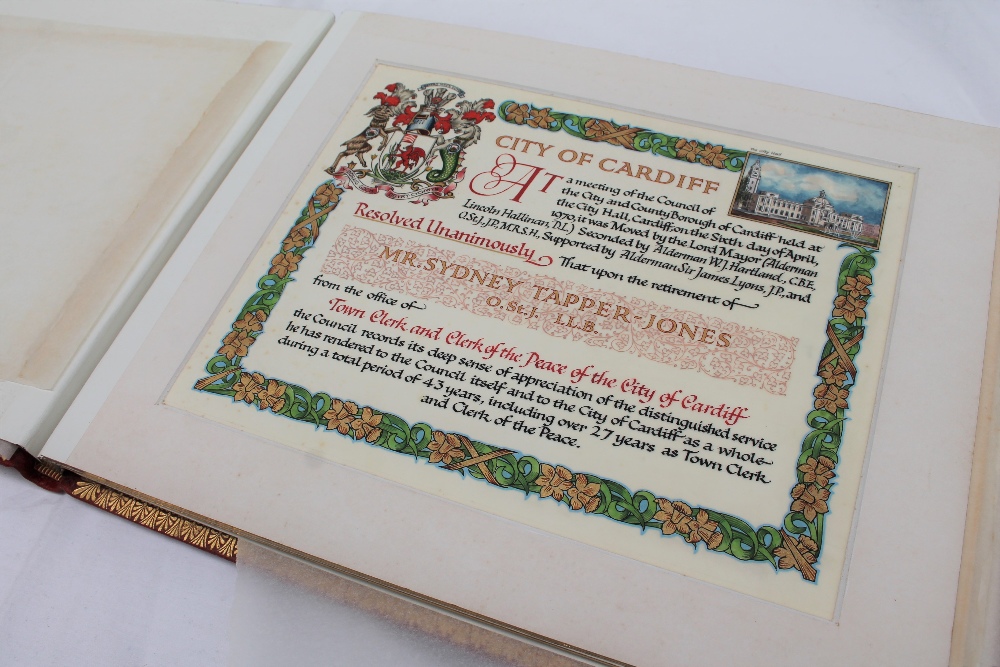 CITY OF CARDIFF
AT a meeting of the Council of
the City and County Borough of Cardiff held at
the City Hall, Cardiff, on the Sixth day of April,
1970, it was Moved by the Lord Mayor (Alderman
Lincoln Hallinan, D.L.) Seconded by Alderman W.J. Hartland, C.B.E.
O.St.J., J.P., M.R.S.H., Supported by Alderman Sir James Lyons, J.P., and
Resolved Unanimously That upon the retirement of
MR. SYDNEY TAPPER-JONES
O.St.J. LL.B.
from the office of
Town Clerk and Clerk of the Peace of the City of Cardiff
the Council records its deep sense of appreciation of the distinguished service
he has rendered to the Council itself and to the City of Cardiff as a whole
during a total period of 43 years, including over 27 years as Town Clerk
and Clerk of the Peace.